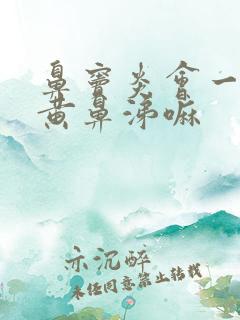 鼻窦炎会一
黄鼻涕嘛
示沉醉
未经同意禁止转载